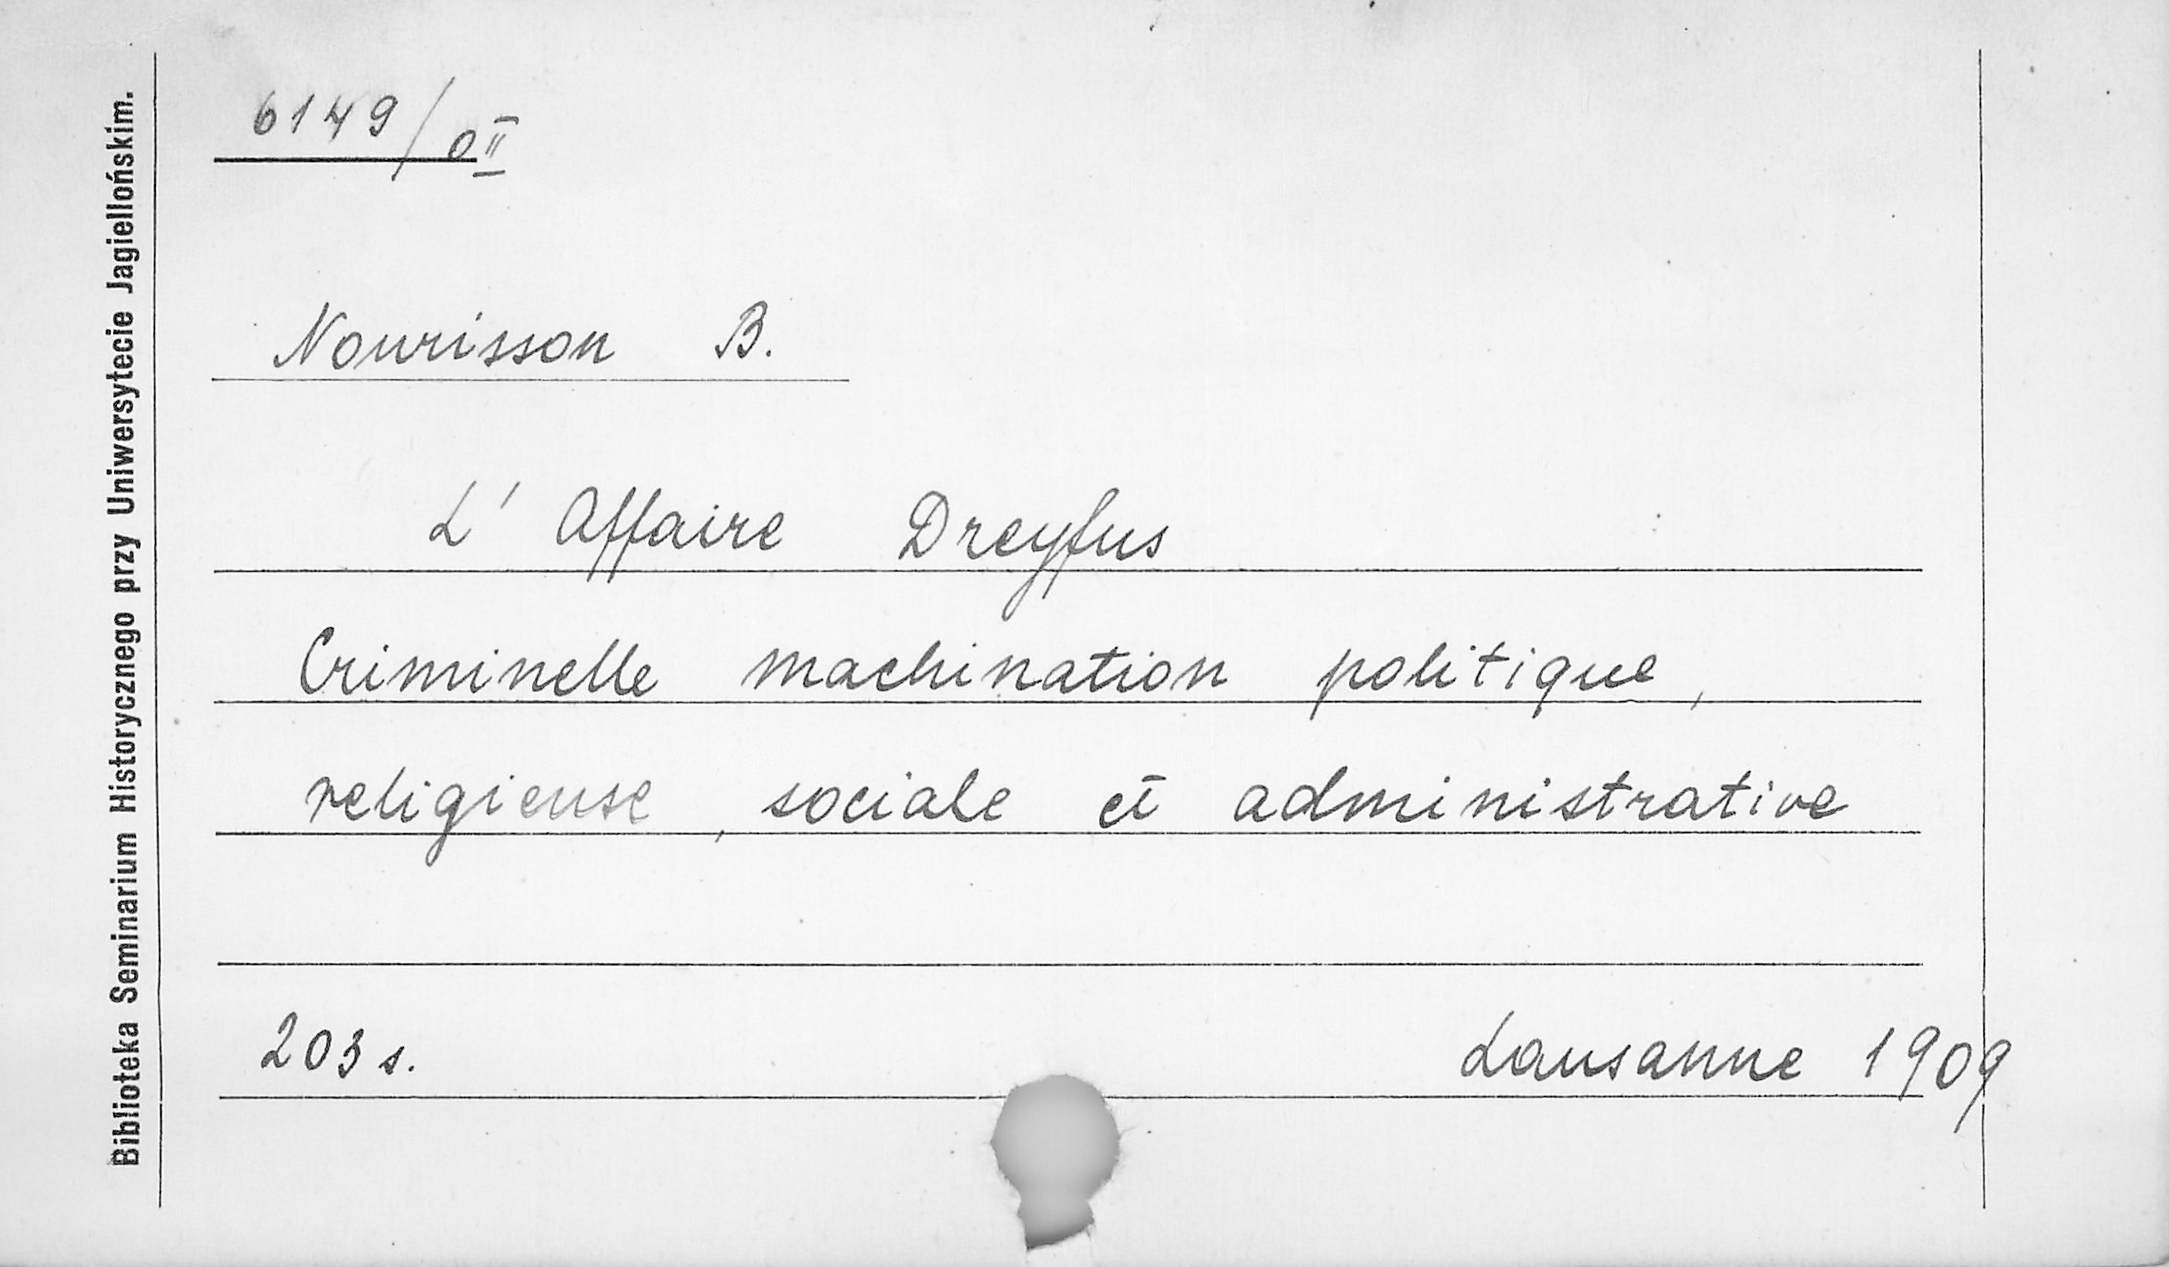 Biblioteka Seminarium Historycznego przy Uniwersytecie Jagiellońskim.
6149/0II
Nourisson B.
L' Affaire Dreyfus
Criminelle machination politique,
religieuse, sociale et administrative
203 s.
Lausanne 1909